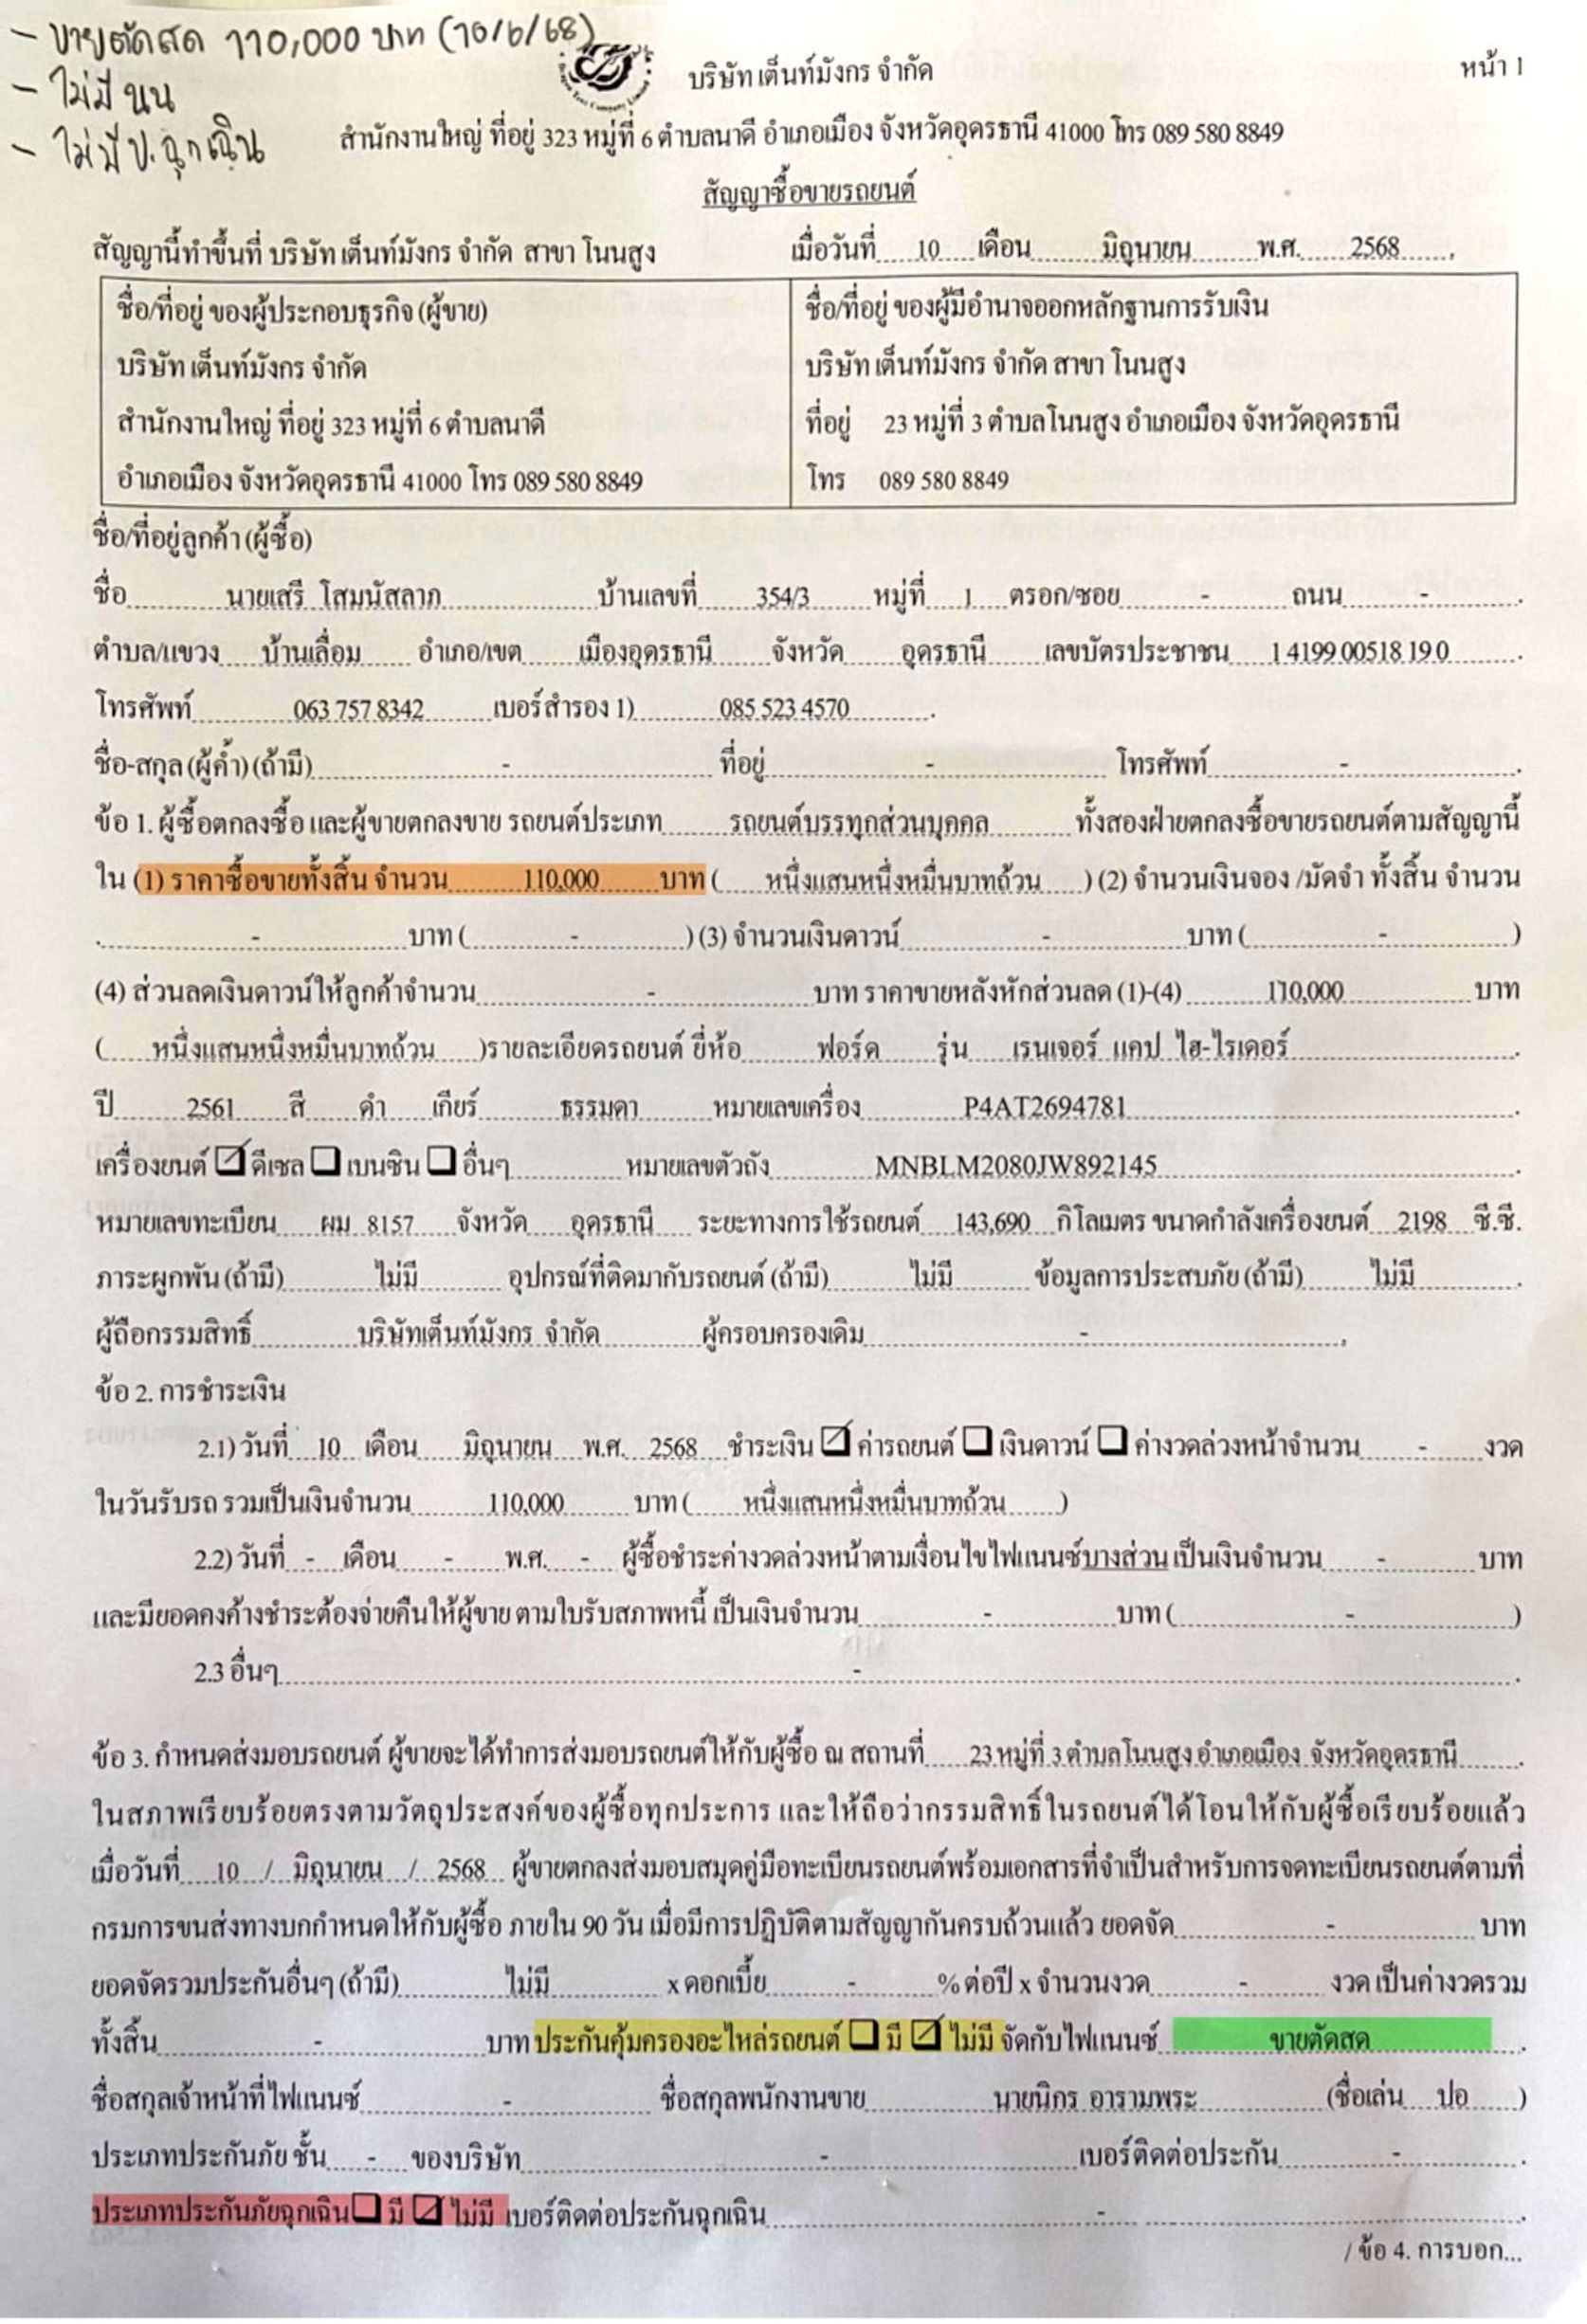 - ขายตัดสด 110,000 บาท (10/6/68)
- ไม่มี นน
- ไม่มี ป.ฉุกเฉิน
บริษัท เต็นท์มังกร จำกัด
หน้า 1
สำนักงานใหญ่ ที่อยู่ 323 หมู่ที่ 6 ตำบลนาดี อำเภอเมือง จังหวัดอุดรธานี 41000 โทร 089 580 8849
สัญญาซื้อขายรถยนต์
สัญญานี้ทำขึ้นที่ บริษัท เต็นท์มังกร จำกัด สาขา โนนสูง เมื่อวันที่ 10 เดือน มิถุนายน พ.ศ. 2568
ชื่อ/ที่อยู่ ของผู้ประกอบธุรกิจ (ผู้ขาย)
บริษัท เต็นท์มังกร จำกัด
สำนักงานใหญ่ ที่อยู่ 323 หมู่ที่ 6 ตำบลนาดี
อำเภอเมือง จังหวัดอุดรธานี 41000 โทร 089 580 8849
ชื่อ/ที่อยู่ ของผู้มีอำนาจออกหลักฐานการรับเงิน
บริษัท เต็นท์มังกร จำกัด สาขา โนนสูง
ที่อยู่ 23 หมู่ที่ 3 ตำบลโนนสูง อำเภอเมือง จังหวัดอุดรธานี
โทร 089 580 8849
ชื่อ/ที่อยู่ลูกค้า (ผู้ซื้อ)
ชื่อ นายเสรี โสมนัสลาภ บ้านเลขที่ 354/3 หมู่ที่ 1 ตรอก/ซอย - ถนน -
ตำบล/แขวง บ้านเลื่อม อำเภอ/เขต เมืองอุดรธานี จังหวัด อุดรธานี เลขบัตรประชาชน 1 4199 00518 19 0
โทรศัพท์ 063 757 8342 เบอร์สำรอง 1) 085 523 4570
ชื่อ-สกุล (ผู้ค้ำ) (ถ้ามี) - ที่อยู่ - โทรศัพท์ -
ข้อ 1. ผู้ซื้อตกลงซื้อ และผู้ขายตกลงขาย รถยนต์ประเภท รถยนต์บรรทุกส่วนบุคคล ทั้งสองฝ่ายตกลงซื้อขายรถยนต์ตามสัญญานี้
ใน (1) ราคาซื้อขายทั้งสิ้น จำนวน 110,000 บาท ( หนึ่งแสนหนึ่งหมื่นบาทถ้วน ) (2) จำนวนเงินจอง /มัดจำ ทั้งสิ้น จำนวน
- บาท ( - ) (3) จำนวนเงินดาวน์ - บาท ( - )
(4) ส่วนลดเงินดาวน์ให้ลูกค้าจำนวน - บาท ราคาขายหลังหักส่วนลด (1)-(4) 110,000 บาท
( หนึ่งแสนหนึ่งหมื่นบาทถ้วน )รายละเอียดรถยนต์ ยี่ห้อ ฟอร์ด รุ่น เรนเจอร์ แคป ไฮ-ไรเดอร์
ปี 2561 สี ดำ เกียร์ ธรรมดา หมายเลขเครื่อง P4AT2694781
เครื่องยนต์ ☑ ดีเซล ☐ เบนซิน ☐ อื่นๆ หมายเลขตัวถัง MNBLM2080JW892145
หมายเลขทะเบียน ผม 8157 จังหวัด อุดรธานี ระยะทางการใช้รถยนต์ 143,690 กิโลเมตร ขนาดกำลังเครื่องยนต์ 2198 ซี.ซี.
ภาระผูกพัน (ถ้ามี) ไม่มี อุปกรณ์ที่ติดมากับรถยนต์ (ถ้ามี) ไม่มี ข้อมูลการประสบภัย (ถ้ามี) ไม่มี
ผู้ถือกรรมสิทธิ์ บริษัทเต็นท์มังกร จำกัด ผู้ครอบครองเดิม -
ข้อ 2. การชำระเงิน
2.1) วันที่ 10 เดือน มิถุนายน พ.ศ. 2568 ชำระเงิน ☑ ค่ารถยนต์ ☐ เงินดาวน์ ☐ ค่างวดล่วงหน้าจำนวน - งวด
ในวันรับรถ รวมเป็นเงินจำนวน 110,000 บาท ( หนึ่งแสนหนึ่งหมื่นบาทถ้วน )
2.2) วันที่ - เดือน - พ.ศ. - ผู้ซื้อชำระค่างวดล่วงหน้าตามเงื่อนไขไฟแนนซ์บางส่วน เป็นเงินจำนวน - บาท
และมียอดคงค้างชำระต้องจ่ายคืนให้ผู้ขาย ตามใบรับสภาพหนี้ เป็นเงินจำนวน - บาท ( - )
2.3 อื่นๆ -
ข้อ 3. กำหนดส่งมอบรถยนต์ ผู้ขายจะได้ทำการส่งมอบรถยนต์ให้กับผู้ซื้อ ณ สถานที่ 23 หมู่ที่ 3 ตำบลโนนสูง อำเภอเมือง จังหวัดอุดรธานี
ในสภาพเรียบร้อยตรงตามวัตถุประสงค์ของผู้ซื้อทุกประการ และให้ถือว่ากรรมสิทธิ์ในรถยนต์ได้โอนให้กับผู้ซื้อเรียบร้อยแล้ว
เมื่อวันที่ 10 / มิถุนายน / 2568 ผู้ขายตกลงส่งมอบสมุดคู่มือทะเบียนรถยนต์พร้อมเอกสารที่จำเป็นสำหรับการจดทะเบียนรถยนต์ตามที่
กรมการขนส่งทางบกกำหนดให้กับผู้ซื้อ ภายใน 90 วัน เมื่อมีการปฏิบัติตามสัญญากันครบถ้วนแล้ว ยอดจัด - บาท
ยอดจัดรวมประกันอื่นๆ (ถ้ามี) ไม่มี x ดอกเบี้ย - % ต่อปี x จำนวนงวด - งวด เป็นค่างวดรวม
ทั้งสิ้น - บาท ประกันคุ้มครองอะไหล่รถยนต์ ☐ มี ☑ ไม่มี จัดกับไฟแนนซ์ ขายตัดสด
ชื่อสกุลเจ้าหน้าที่ไฟแนนซ์ - ชื่อสกุลพนักงานขาย นายนิกร อารามพระ (ชื่อเล่น ปอ )
ประเภทประกันภัย ชั้น - ของบริษัท - เบอร์ติดต่อประกัน -
ประเภทประกันภัยฉุกเฉิน ☐ มี ☑ ไม่มี เบอร์ติดต่อประกันฉุกเฉิน -
/ ข้อ 4. การบอก...